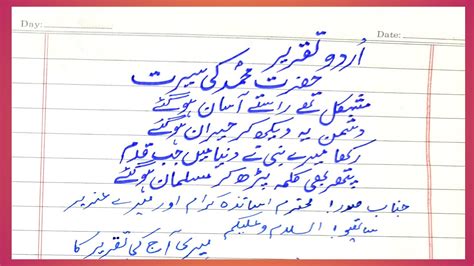 Day:
Date:
اُردو تقریر
حضرت محمدؐ کی سیرت
مشکل تھے راستے آسان ہو گئے
دشمن یہ دیکھ کر حیران ہو گئے
رکھا میرے نبیؐ نے دنیا میں جب قدم
پتھر بھی کلمہ پڑھ کر مسلمان ہو گئے
جناب صدر! محترم اساتذہ کرام اور میرے عزیز
ساتھیو! السلام و علیکم
میری آج کی تقریر کا